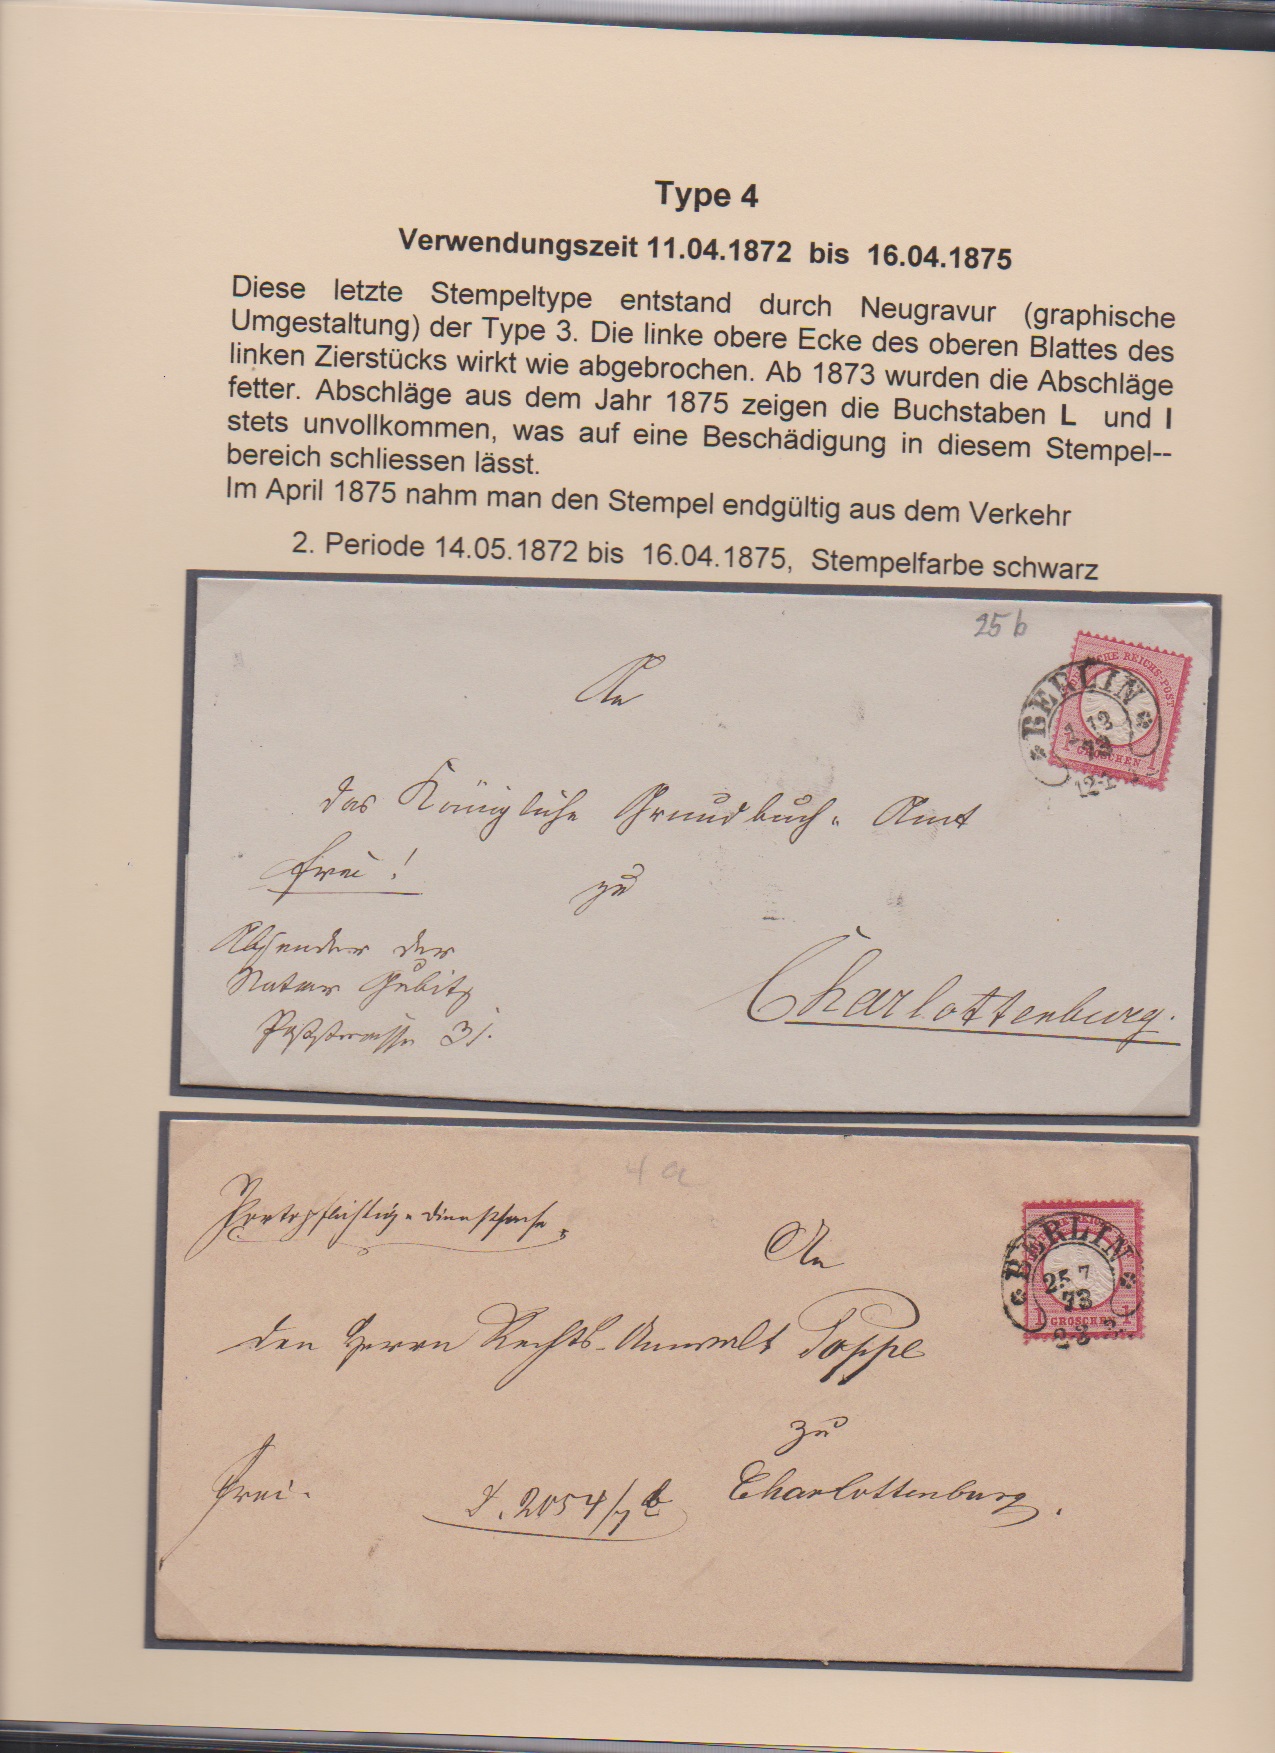 Type 4
Verwendungszeit 11.04.1872 bis 16.04.1875
Diese letzte Stempeltype entstand durch Neugravur (graphische
Umgestaltung) der Type 3. Die linke obere Ecke des oberen Blattes des
linken Zierstücks wirkt wie abgebrochen. Ab 1873 wurden die Abschläge
fetter. Abschläge aus dem Jahr 1875 zeigen die Buchstaben L und I
stets unvollkommen, was auf eine Beschädigung in diesem Stempel--
bereich schliessen lässt.
Im April 1875 nahm man den Stempel endgültig aus dem Verkehr
2. Periode 14.05.1872 bis 16.04.1875, Stempelfarbe schwarz
25 b
REICHS-POST
BERLIN
GROSCHEN
An
das Königliche Grundbuch-Amt
frei!
zu
Absender der
Notar Gubitz
Poststrasse 31.
Charlottenburg.
4 a
Portopflichtige Dienstsache
An
BERLIN
25 7
73
1 GROSCHEN 1
den Herrn Rechts-Anwalt Poppe
zu
Charlottenburg.
frei.
2054/7